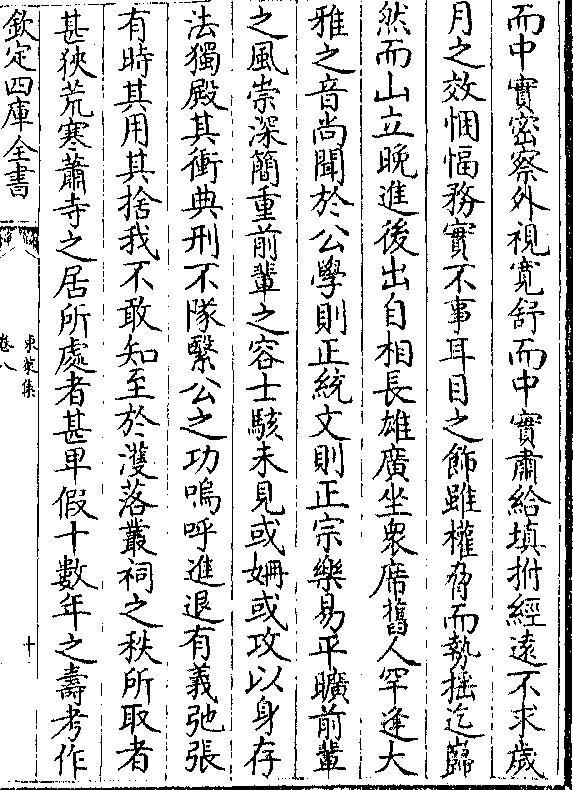 而中實密察外視寛舒而中實肅給填拊經逺不求歲
月之效悃愊務實不事耳目之飾雖權脅而勢揺迄巋
然而山立晚進後出自相長雄廣坐衆席舊人罕逢大
雅之音尚聞於公學則正統文則正宗樂易平曠前輩
之風崇深簡重前輩之容士駭未見或姍或攻以身存
法獨殿其衝典刑不隊繄公之功嗚呼進退有義弛張
有時其用其捨我不敢知至於濩落叢祠之秩所取者
甚狹荒寒蕭寺之居所處者甚卑假十數年之壽考作
欽定四庫全書
東萊集
卷八
十